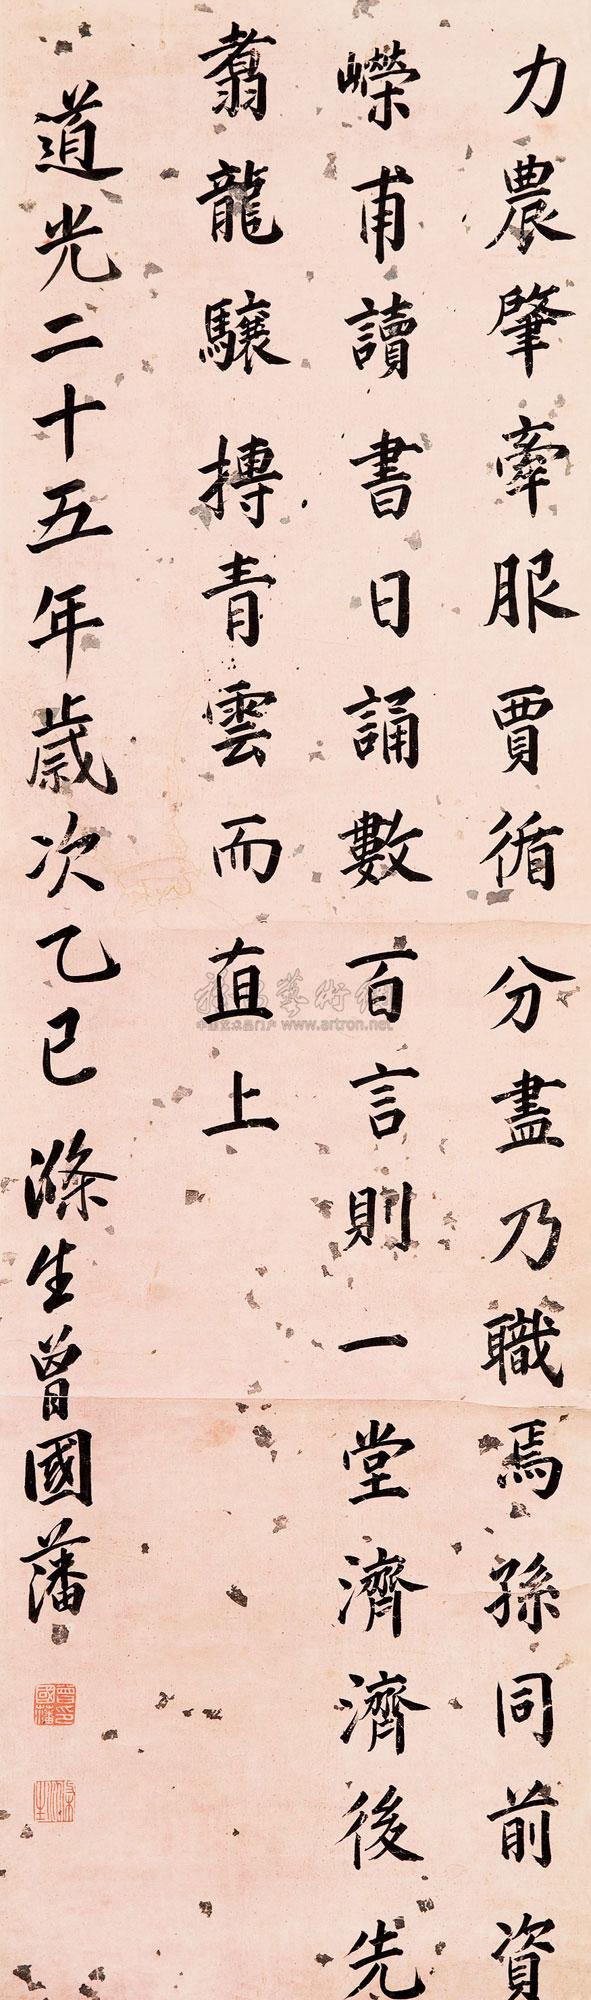 力農肇牽服賈循分盡乃職焉孫同前資
嶸甫讀書日誦數百言則一堂濟濟後先
翥龍驤摶青雲而直上
道光二十五年歲次乙巳 滌生曾國藩
曾國藩印
滌生
雅昌藝術網
www.artron.net